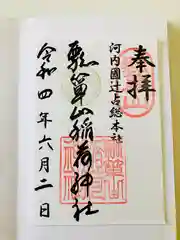 奉拝
河内國辻占総本社
瓢箪山稲荷神社
令和四年六月二日